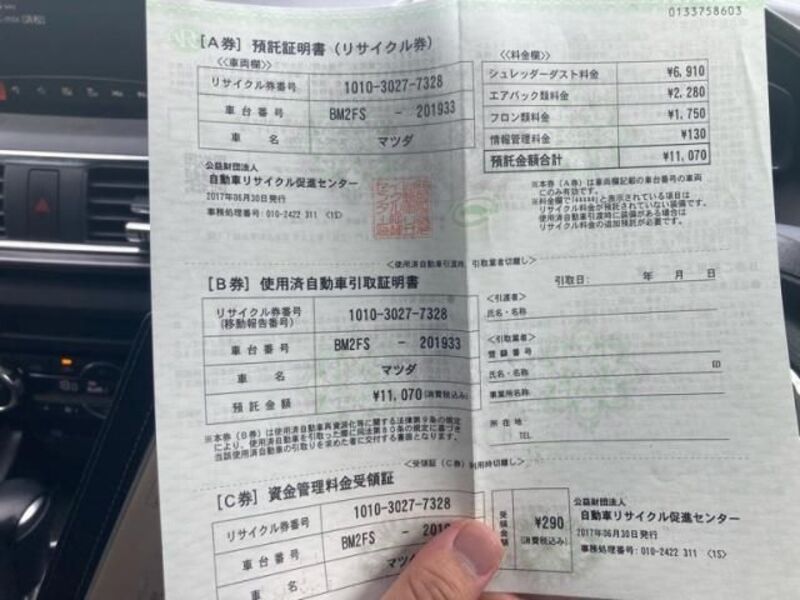 0133758603
[A券] 預託証明書 (リサイクル券)
<<車両欄>>
リサイクル券番号 1010-3027-7328
車台番号 BM2FS - 201933
車 名 マツダ
<<料金欄>>
シュレッダーダスト料金 ¥6,910
エアバック類料金 ¥2,280
フロン類料金 ¥1,750
情報管理料金 ¥130
預託金額合計 ¥11,070
公益財団法人
自動車リサイクル促進センター
2017年06月30日発行
事務処理番号:010-2422 311 <1S>
※本券(A券)は車両欄記載の車台番号の車両
にのみ有効です。
※料金欄で「*****」と表示されている項目は
リサイクル料金が預託されていない装備です。
使用済自動車引渡時に装備がある場合は
リサイクル料金の追加預託が必要です。
<使用済自動車引渡時、引取業者切離し>
[B券] 使用済自動車引取証明書
リサイクル券番号 1010-3027-7328
(移動報告番号)
車台番号 BM2FS - 201933
車 名 マツダ
預託金額 ¥11,070(消費税込み)
引取日: 年 月 日
<引渡者>
氏名・名称
<引取業者>
登録番号
氏名・名称 印
事業所名称
所在地
TEL
※本券(B券)は使用済自動車再資源化等に関する法律第9条の規定
により、使用済自動車を引取った際に同法第80条の規定に基づき
当該使用済自動車の引取りを求めた者に交付する書面となります。
<受領証(C券)利用時切離し>
[C券] 資金管理料金受領証
リサイクル券番号 1010-3027-7328
車台番号 BM2FS - 2019
車 名 マツダ
受領金額 ¥290
(消費税込み)
公益財団法人
自動車リサイクル促進センター
2017年06月30日発行
事務処理番号:010-2422 311 <1S>